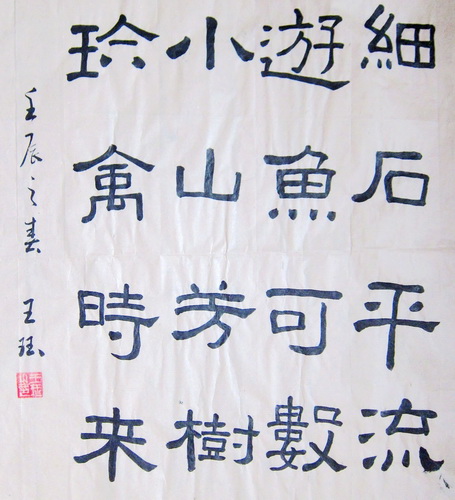 細石平流
遊魚可數
小山芳樹
珍禽時来
壬辰之春 王珏